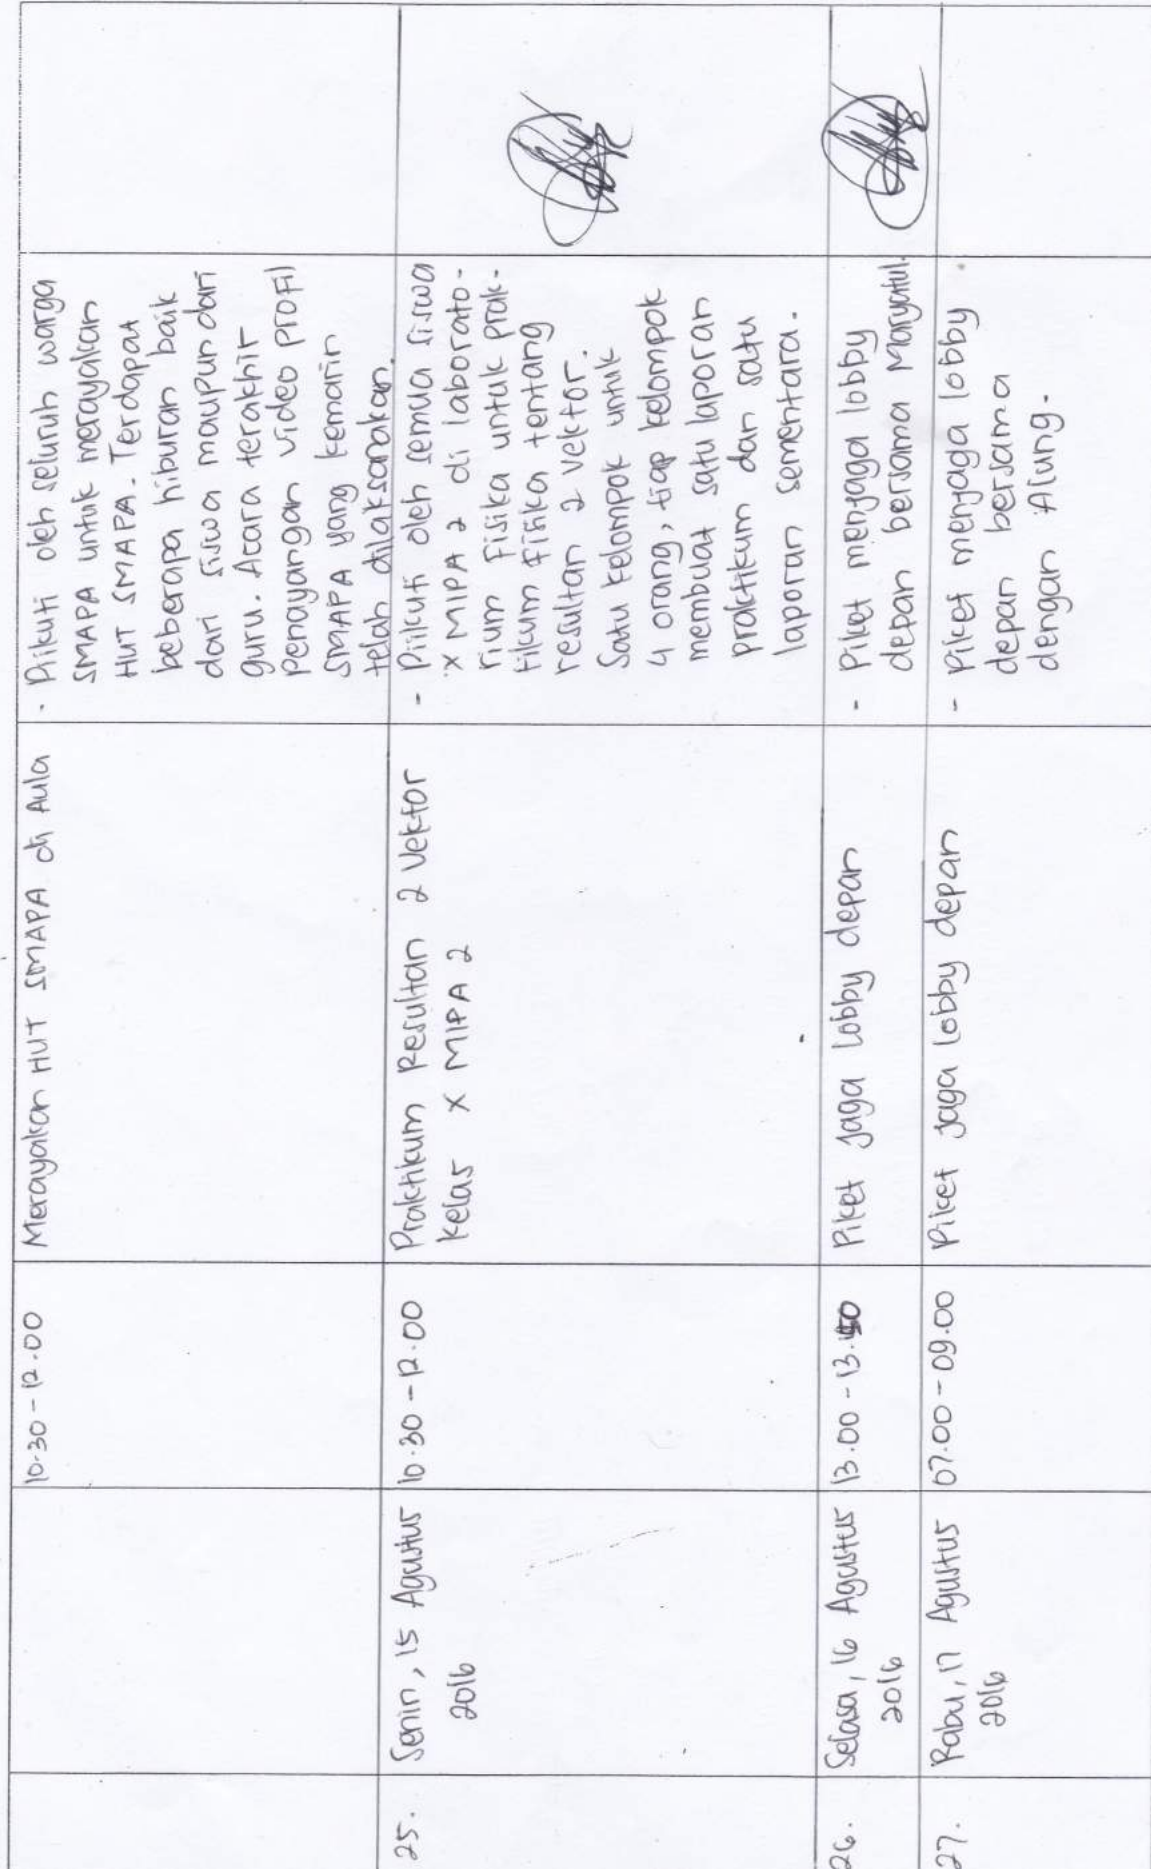 10.30 - 12.00
Merayakan HUT SMAPA di Aula
- Diikuti oleh seluruh warga
SMAPA untuk merayakan
HUT SMAPA. Terdapat
beberapa hiburan baik
dari siswa maupun dari
guru. Acara terakhir
penayangan video profil
SMAPA yang kemarin
telah dilaksanakan.
25.
Senin, 15 Agustus
2016
10.30 - 12.00
Praktikum Resultan 2 Vektor
Kelas X MIPA 2
- Diikuti oleh semua siswa
X MIPA 2 di laborato-
rium Fisika untuk prak-
tikum Fisika tentang
resultan 2 vektor.
Satu kelompok untuk
4 orang, tiap kelompok
membuat satu laporan
praktikum dan satu
laporan sementara.
26.
Selasa, 16 Agustus
2016
13.00 - 13.
Piket jaga lobby depan
- Piket menjaga lobby
depan bersama Maryatul.
27.
Rabu, 17 Agustus
2016
07.00 - 09.00
Piket jaga lobby depan
- Piket menjaga lobby
depan bersama
dengan Ajung.